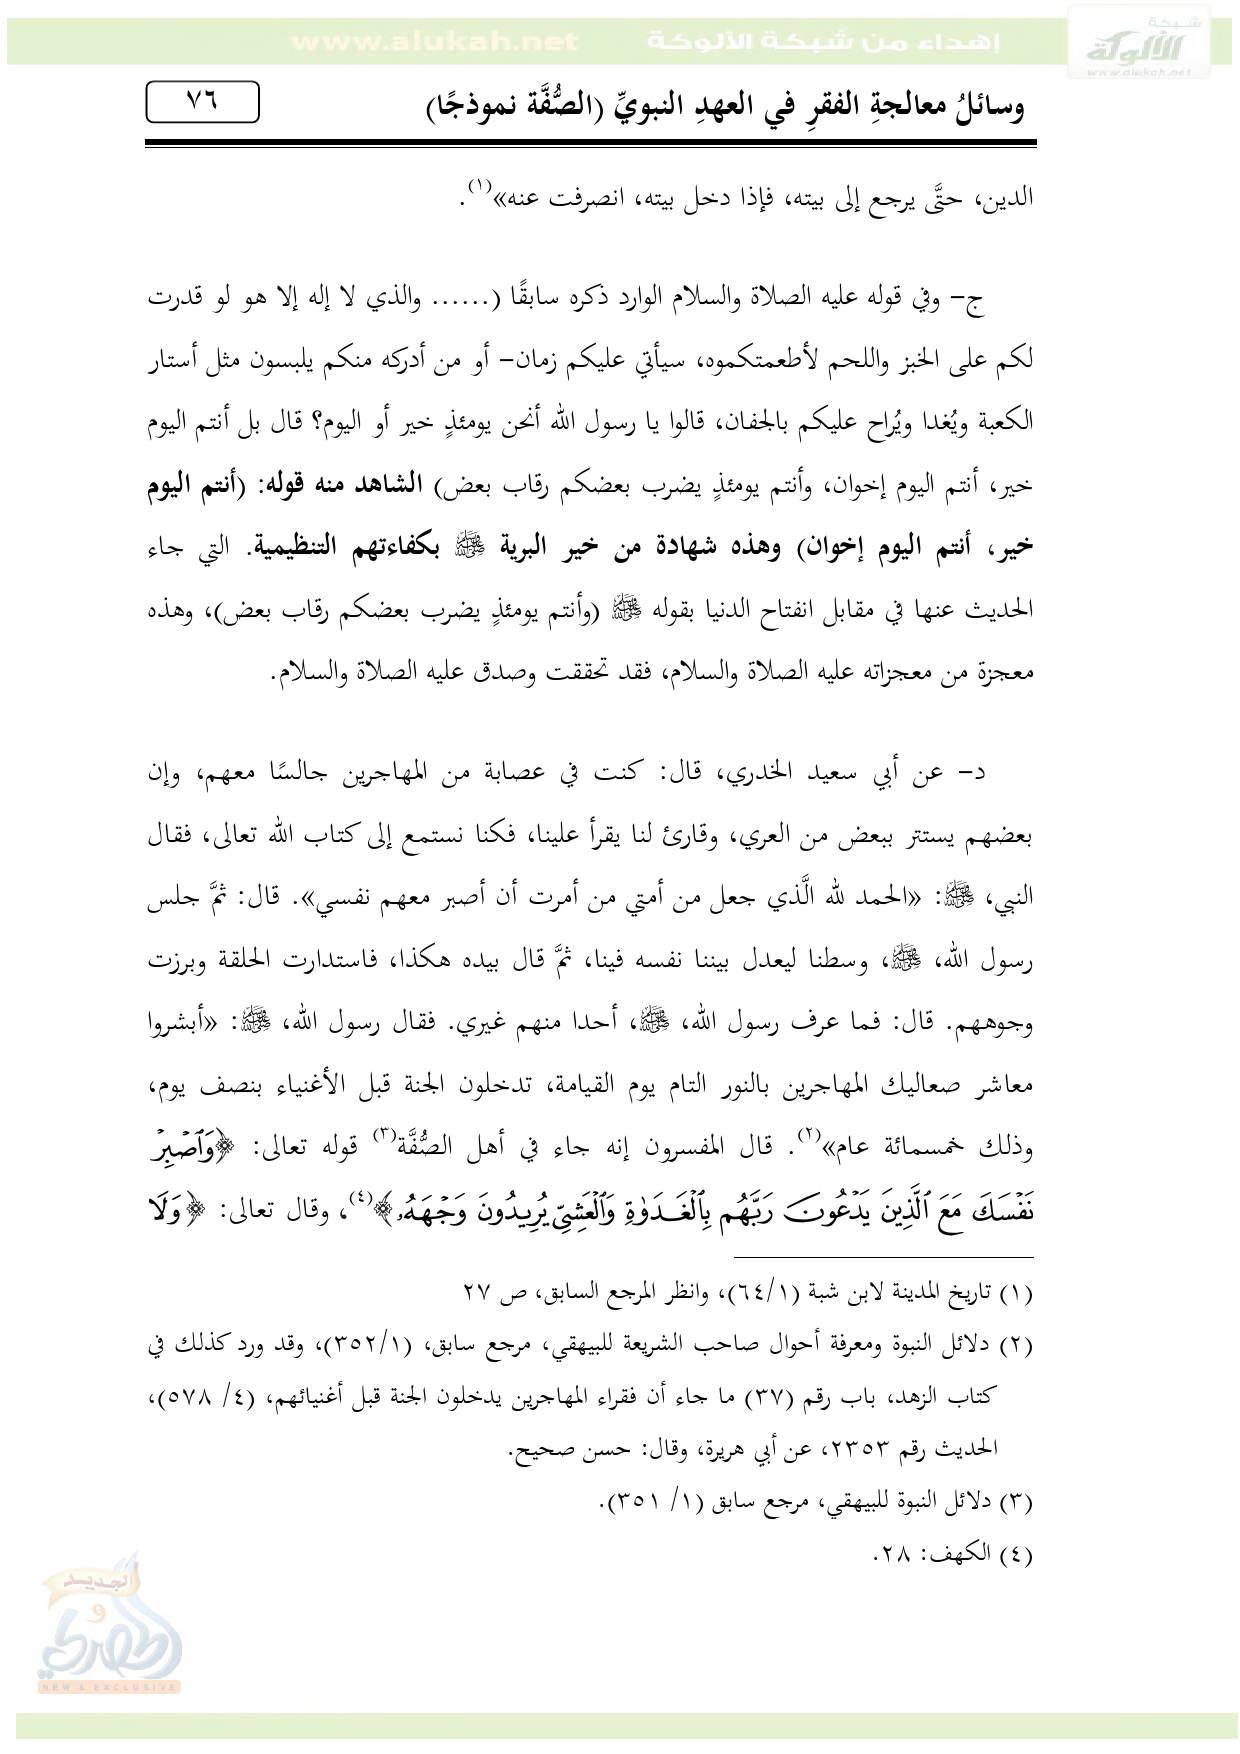 www.alukah.net إهداء من شبكة الألوكة
شبكة
الألوكة
www.alukah.net
وسائلُ معالجةِ الفقرِ في العهدِ النبويِّ (الصُّفَّة نموذجًا) ٧٦
الدين، حتَّى يرجع إلى بيته، فإذا دخل بيته، انصرفت عنه»(١).
ج- وفي قوله عليه الصلاة والسلام الوارد ذكره سابقًا (...... والذي لا إله إلا هو لو قدرت
لكم على الخبز واللحم لأطعمتكموه، سيأتي عليكم زمان- أو من أدركه منكم يلبسون مثل أستار
الكعبة ويُغدا ويُراح عليكم بالجفان، قالوا يا رسول الله أنحن يومئذٍ خير أو اليوم؟ قال بل أنتم اليوم
خير، أنتم اليوم إخوان، وأنتم يومئذٍ يضرب بعضكم رقاب بعض) الشاهد منه قوله: (أنتم اليوم
خير، أنتم اليوم إخوان) وهذه شهادة من خير البرية ﷺ بكفاءتهم التنظيمية. التي جاء
الحديث عنها في مقابل انفتاح الدنيا بقوله ﷺ (وأنتم يومئذٍ يضرب بعضكم رقاب بعض)، وهذه
معجزة من معجزاته عليه الصلاة والسلام، فقد تحققت وصدق عليه الصلاة والسلام.
د- عن أبي سعيد الخدري، قال: كنت في عصابة من المهاجرين جالسًا معهم، وإن
بعضهم يستتر ببعض من العري، وقارئ لنا يقرأ علينا، فكنا نستمع إلى كتاب الله تعالى، فقال
النبي، ﷺ: «الحمد لله الَّذي جعل من أمتي من أمرت أن أصبر معهم نفسي». قال: ثمَّ جلس
رسول الله، ﷺ، وسطنا ليعدل بيننا نفسه فينا، ثمَّ قال بيده هكذا، فاستدارت الحلقة وبرزت
وجوههم. قال: فما عرف رسول الله، ﷺ، أحدا منهم غيري. فقال رسول الله، ﷺ: «أبشروا
معاشر صعاليك المهاجرين بالنور التام يوم القيامة، تدخلون الجنة قبل الأغنياء بنصف يوم،
وذلك خمسمائة عام»(٢). قال المفسرون إنه جاء في أهل الصُّفَّة(٣) قوله تعالى: ﴿وَٱصۡبِرۡ
نَفۡسَكَ مَعَ ٱلَّذِينَ يَدۡعُونَ رَبَّهُم بِٱلۡغَدَوٰةِ وَٱلۡعَشِيِّ يُرِيدُونَ وَجۡهَهُۥ﴾(٤)، وقال تعالى: ﴿وَلَا
(١) تاريخ المدينة لابن شبة (١/٦٤)، وانظر المرجع السابق، ص ٢٧
(٢) دلائل النبوة ومعرفة أحوال صاحب الشريعة للبيهقي، مرجع سابق، (١/٣٥٢)، وقد ورد كذلك في
كتاب الزهد، باب رقم (٣٧) ما جاء أن فقراء المهاجرين يدخلون الجنة قبل أغنيائهم، (٤/ ٥٧٨)،
الحديث رقم ٢٣٥٣، عن أبي هريرة، وقال: حسن صحيح.
(٣) دلائل النبوة للبيهقي، مرجع سابق (١/ ٣٥١).
(٤) الكهف: ٢٨.
الجديد
و
الحصري
NEW & EXCLUSIVE